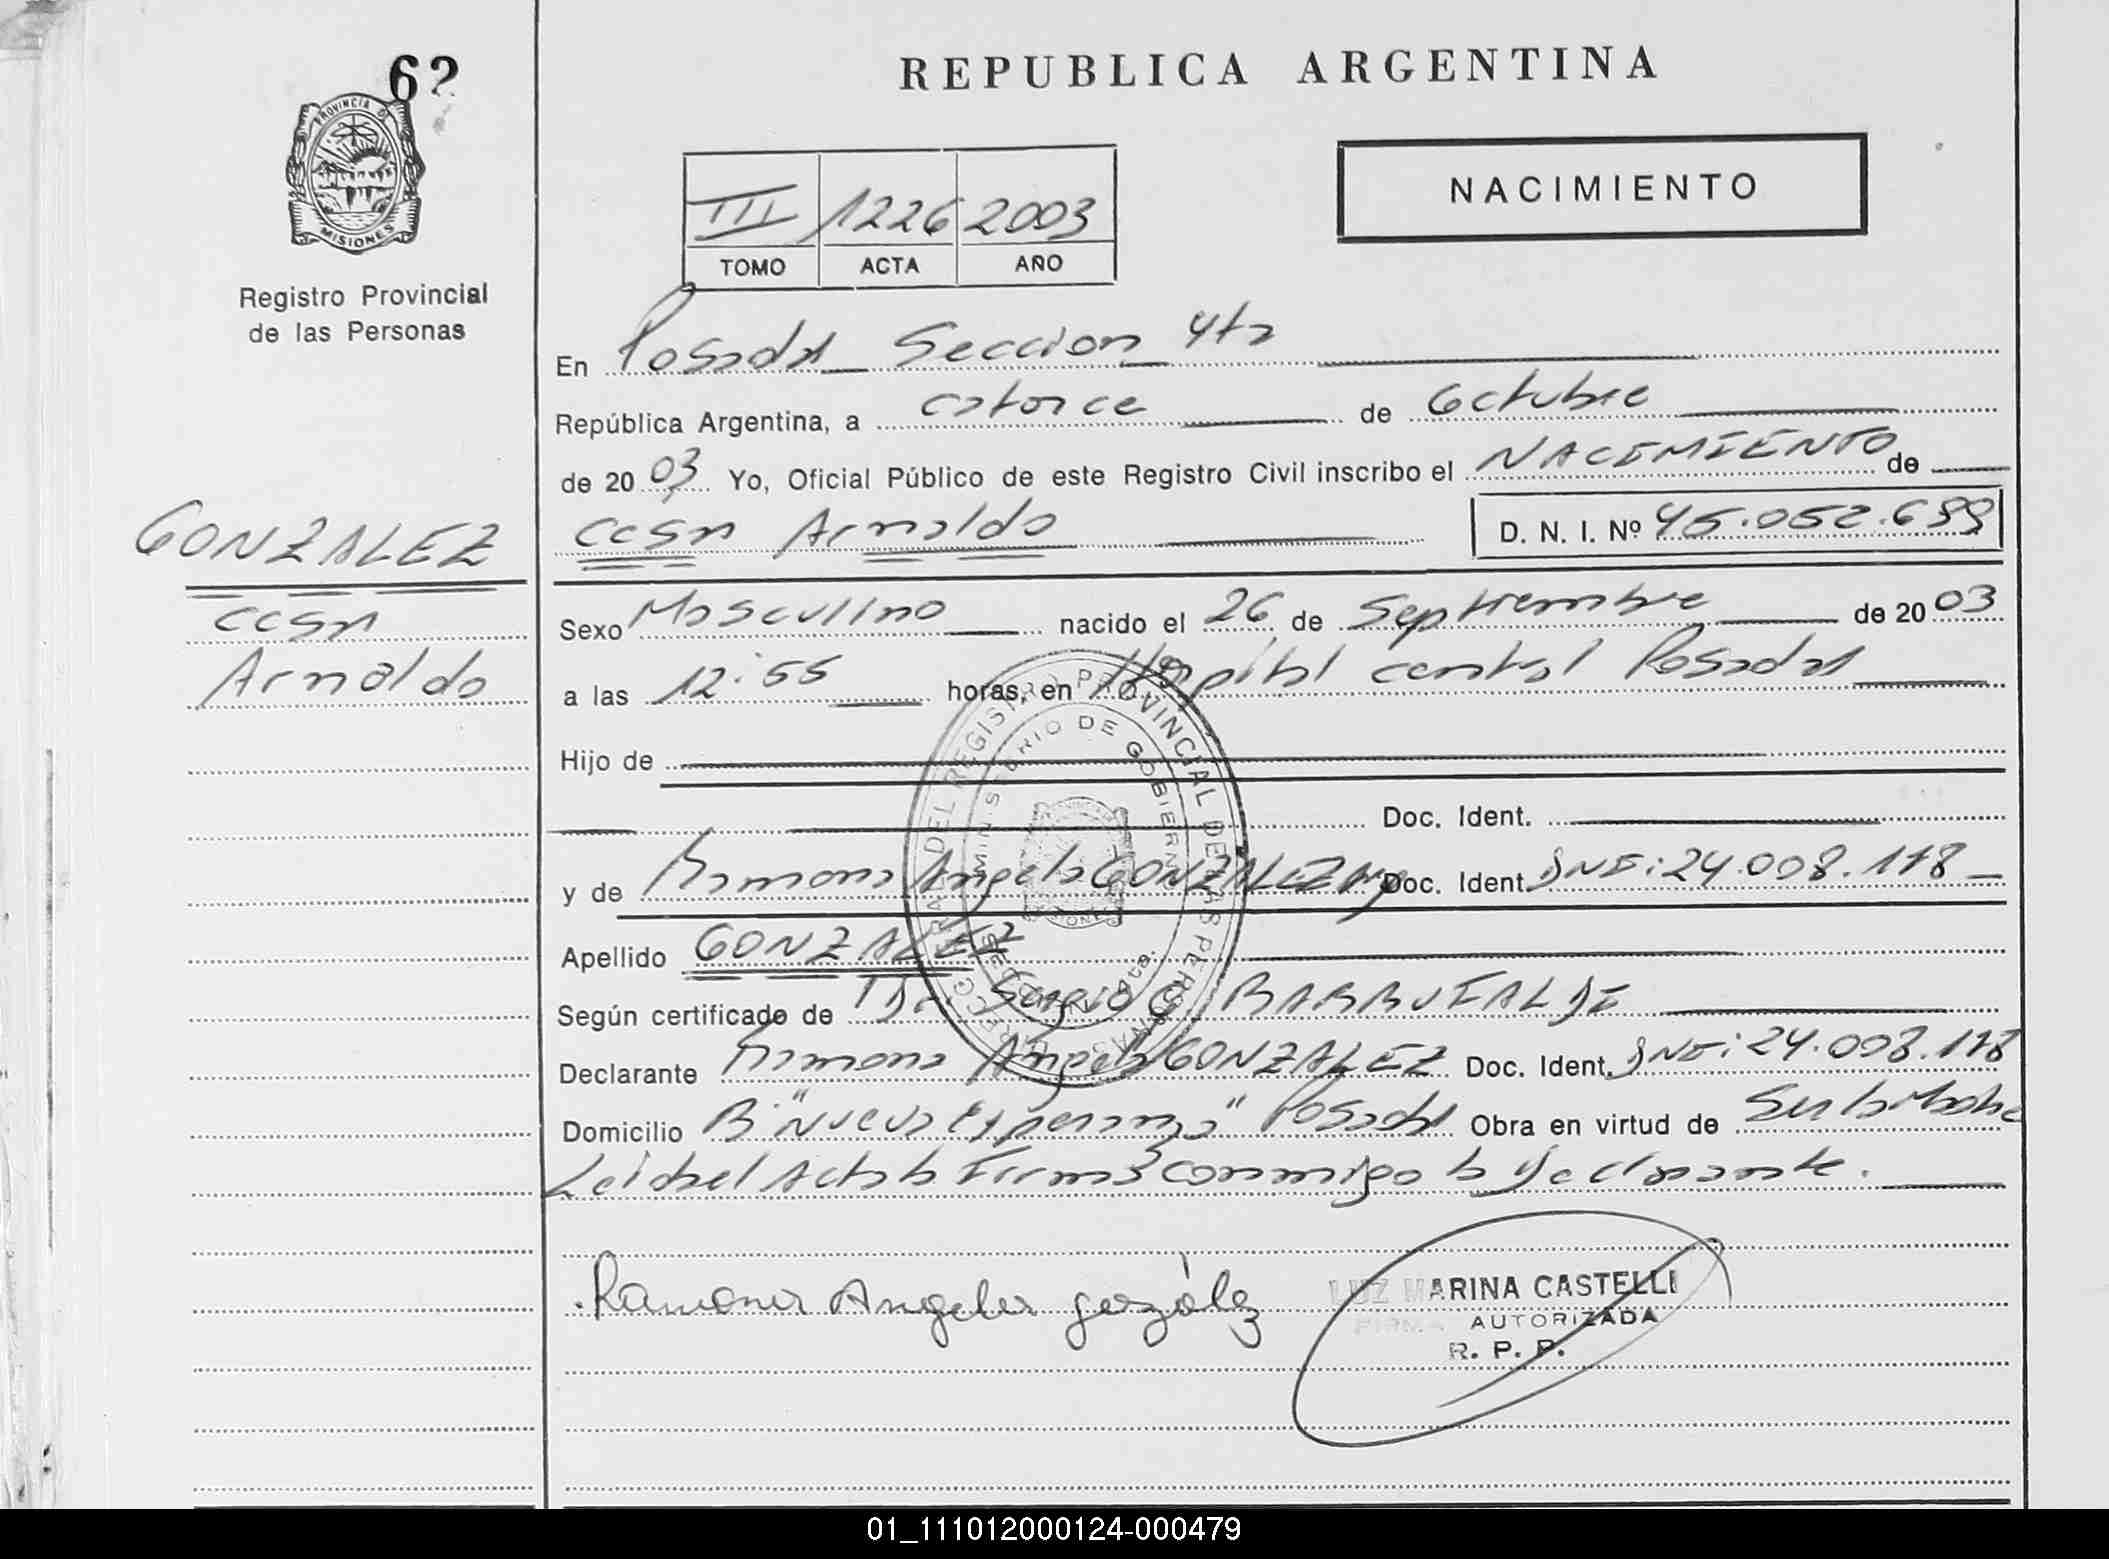 62
PROVINCIA DE
MISIONES
Registro Provincial
de las Personas
GONZALEZ
Arnaldo
REPUBLICA ARGENTINA
NACIMIENTO
III 1226 2003
TOMO ACTA AÑO
En Posadas Seccion 4ta
República Argentina, a catorce de Octubre
de 2003 Yo, Oficial Público de este Registro Civil inscribo el NACIMIENTO de
Arnaldo D. N. I. Nº 45.052.699
Sexo Masculino nacido el 26 de Septiembre de 2003
a las 12:55 horas, en Hospital central Posadas
Hijo de
Doc. Ident.
y de Ramona Angela GONZALEZ Doc. Ident. DNI: 24.008.178
Apellido GONZALEZ
Según certificado de Dr. Sergio BARRUFALDI
Declarante Ramona Angela GONZALEZ Doc. Ident. DNI: 24.008.178
Domicilio B: "Nueva Esperanza" Posadas Obra en virtud de Ser la Madre
Leida el Acta la Firma conmigo la declarante.
Ramona Angela
LUZ MARINA CASTELLI
FIRMA AUTORIZADA
R. P. P.
DEL REGISTRO PROVINCIAL DE LAS PERSONAS
MINISTERIO DE GOBIERNO
MISIONES
01_111012000124-000479